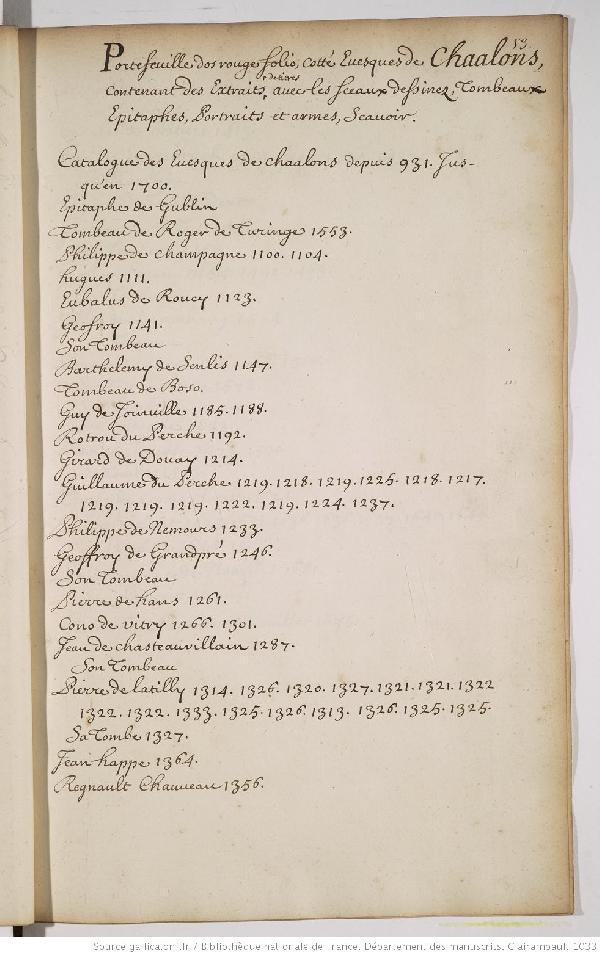 53.
Portefeuille dos rouge folio, cotté Euesques de Chaalons,
contenant des Extraits, de titres avec les sceaux dessinez, Tombeaux
Epitaphes, Portraits et armes, Scauoir.
Catalogue des Euesques de chaalons depuis 931. Jus-
qu'en 1700.
Epitaphe de Gublin
Tombeau de Roger de Turinge 1553.
Philippe de champagne 1100. 1104.
hugues 1111.
Eubalus de Roucy 1123.
Geofroy 1141.
Son Tombeau
Barthelemy de Senlis 1147.
Tombeau de Boso.
Guy de Joinuille 1185. 1188.
Rotrou du Perche 1192.
Girard de Douay 1214.
Guillaume du Perche 1219. 1218. 1219. 1225. 1218. 1217.
1219. 1219. 1219. 1222. 1219. 1224. 1237.
Philippe de Nemours 1233.
Geoffroy de Grandpré 1246.
Son Tombeau
Pierre de hans 1261.
Cono de vitry 1266. 1301.
Jean de chasteauvillain 1287.
Son Tombeau
Pierre de latilly 1314. 1326. 1320. 1327. 1321. 1321. 1322
1322. 1322. 1333. 1325. 1326. 1313. 1326. 1325. 1325.
Sa Tombe 1327.
Jean happe 1364.
Regnault Chauueau 1356.
Source gallica.bnf.fr / Bibliothèque nationale de France. Département des manuscrits. Clairambault 1033